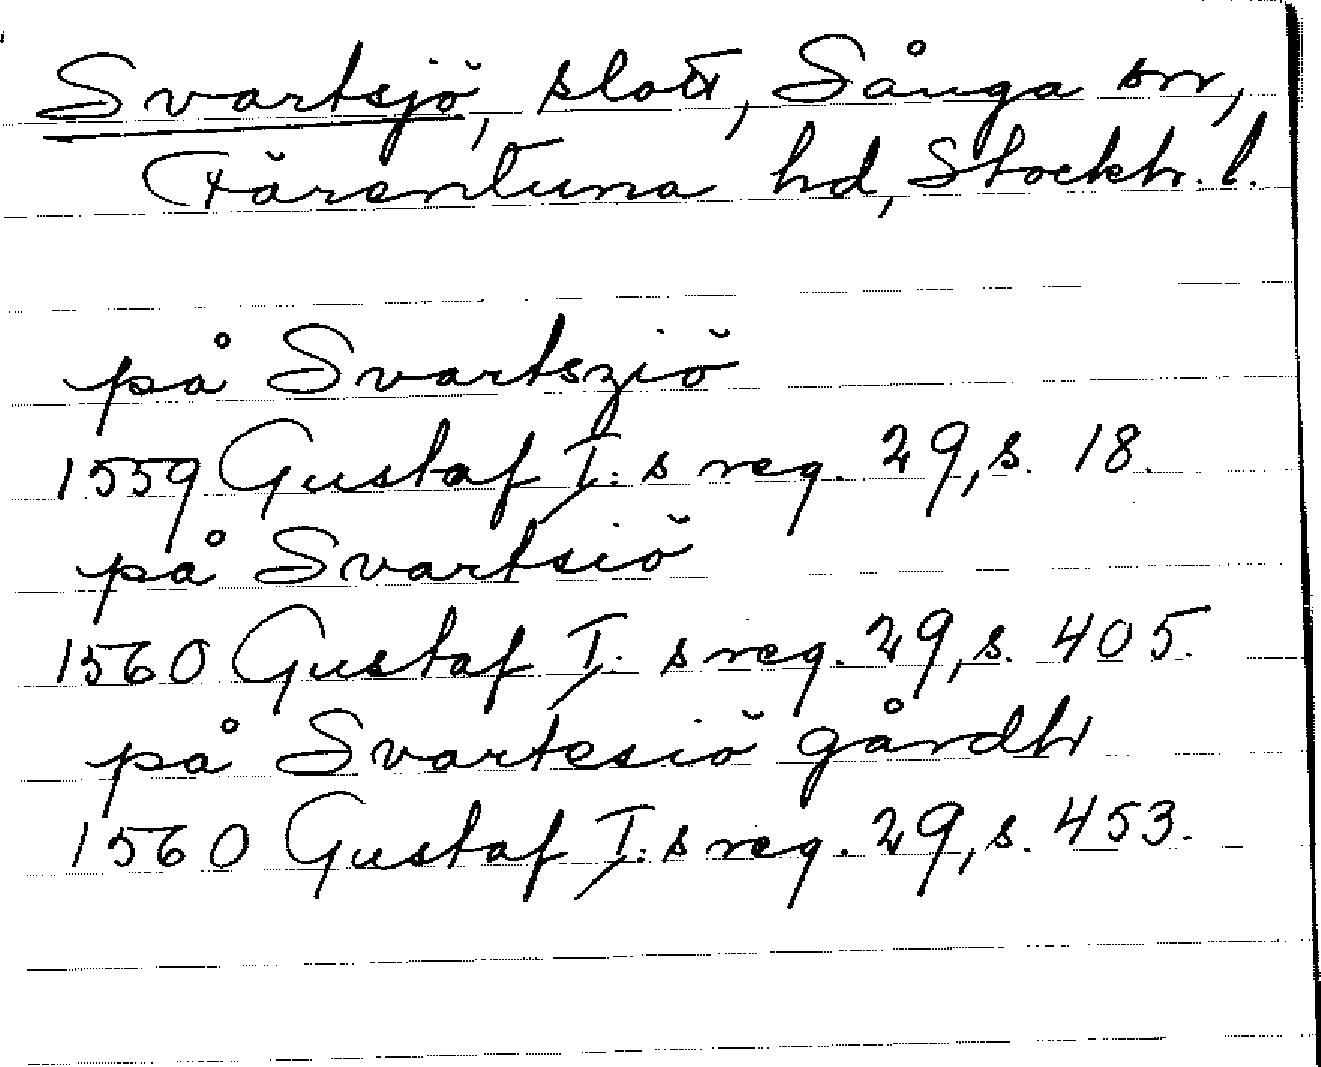 Svartsjö, slott, Sånga sn,
Färentuna hd, Stockh. l.
på Svartsziö
1559 Gustaf I:s reg. 29, s. 18.
på Svartsiö
1560 Gustaf I:s reg. 29, s. 405.
på Svartesiö gårdh
1560 Gustaf I:s reg. 29, s. 453.